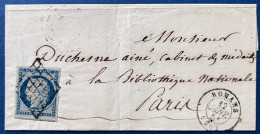 Monsieur
Duchesne ainé, cabinet des médailles
à la Bibliothèque Nationale
Paris
ROMANS